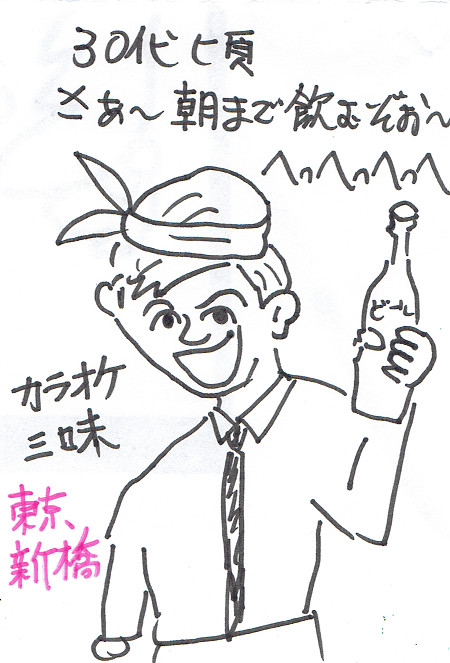 30代ヒ頃
さぁ～朝まで飲むぞお～
へっへっへっへ
ビール
カラオケ
三味
東京、
新橋